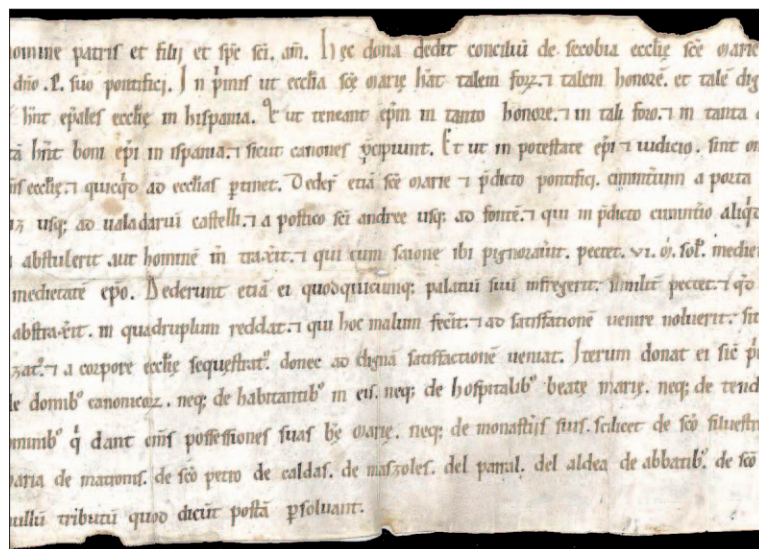 nomine patris et filij et spc sci. am. Hec dona dedit conciliu de secobia ecclie sce marie
dno .P. suo pontifici. In pmis ut ecclia sce marie hat talem foru ⁊ talem honore. et tale dig
hnt epales ecclie in hispania. Et ut teneant epm in tanto honore. ⁊ in tali foro. ⁊ in tanta
ta hnt boni epi in ispania. ⁊ sicut canones pcipiunt. Et ut in potestate epi ⁊ iudicio. sint
ecclie. ⁊ quicqd ad ecclias ptinet. Deder etia sce marie ⁊ pdicto pontifici. cimitium a porta
usq; ad ualadaru castelli. ⁊ a postico sci andree usq; ad fonte. ⁊ qui in pdicto cimitio aliqd
abstulerit aut homine in traxit. ⁊ qui cum saione ibi pignoraut. pectet. VI. m. sol. mediet
medietate epo. Dederunt etia ei quod quicumq; palatiu suu infregerit. similit pectet. ⁊ qd
abstraxit. in quadruplum reddat. ⁊ qui hoc malum fecit. ⁊ ad satisfatione uenire noluerit. sit
zat. ⁊ a corpore ecclie sequestrat. donec ad digna satisfactione ueniat. Iterum donat ei sic
de domib canonicoru. neq; de habitantib in eis. neq; de hospitalib beate marie. neq; de tend
ominib q dant oms possessiones suas be marie. neq; de monastijs suis. scilicet de sco siluestr
maria de mationis. de sco petro de caldas. de maszoles. del parral. del aldea de abbatib. de sco
nullu tributu quod dicut posta psoluant.